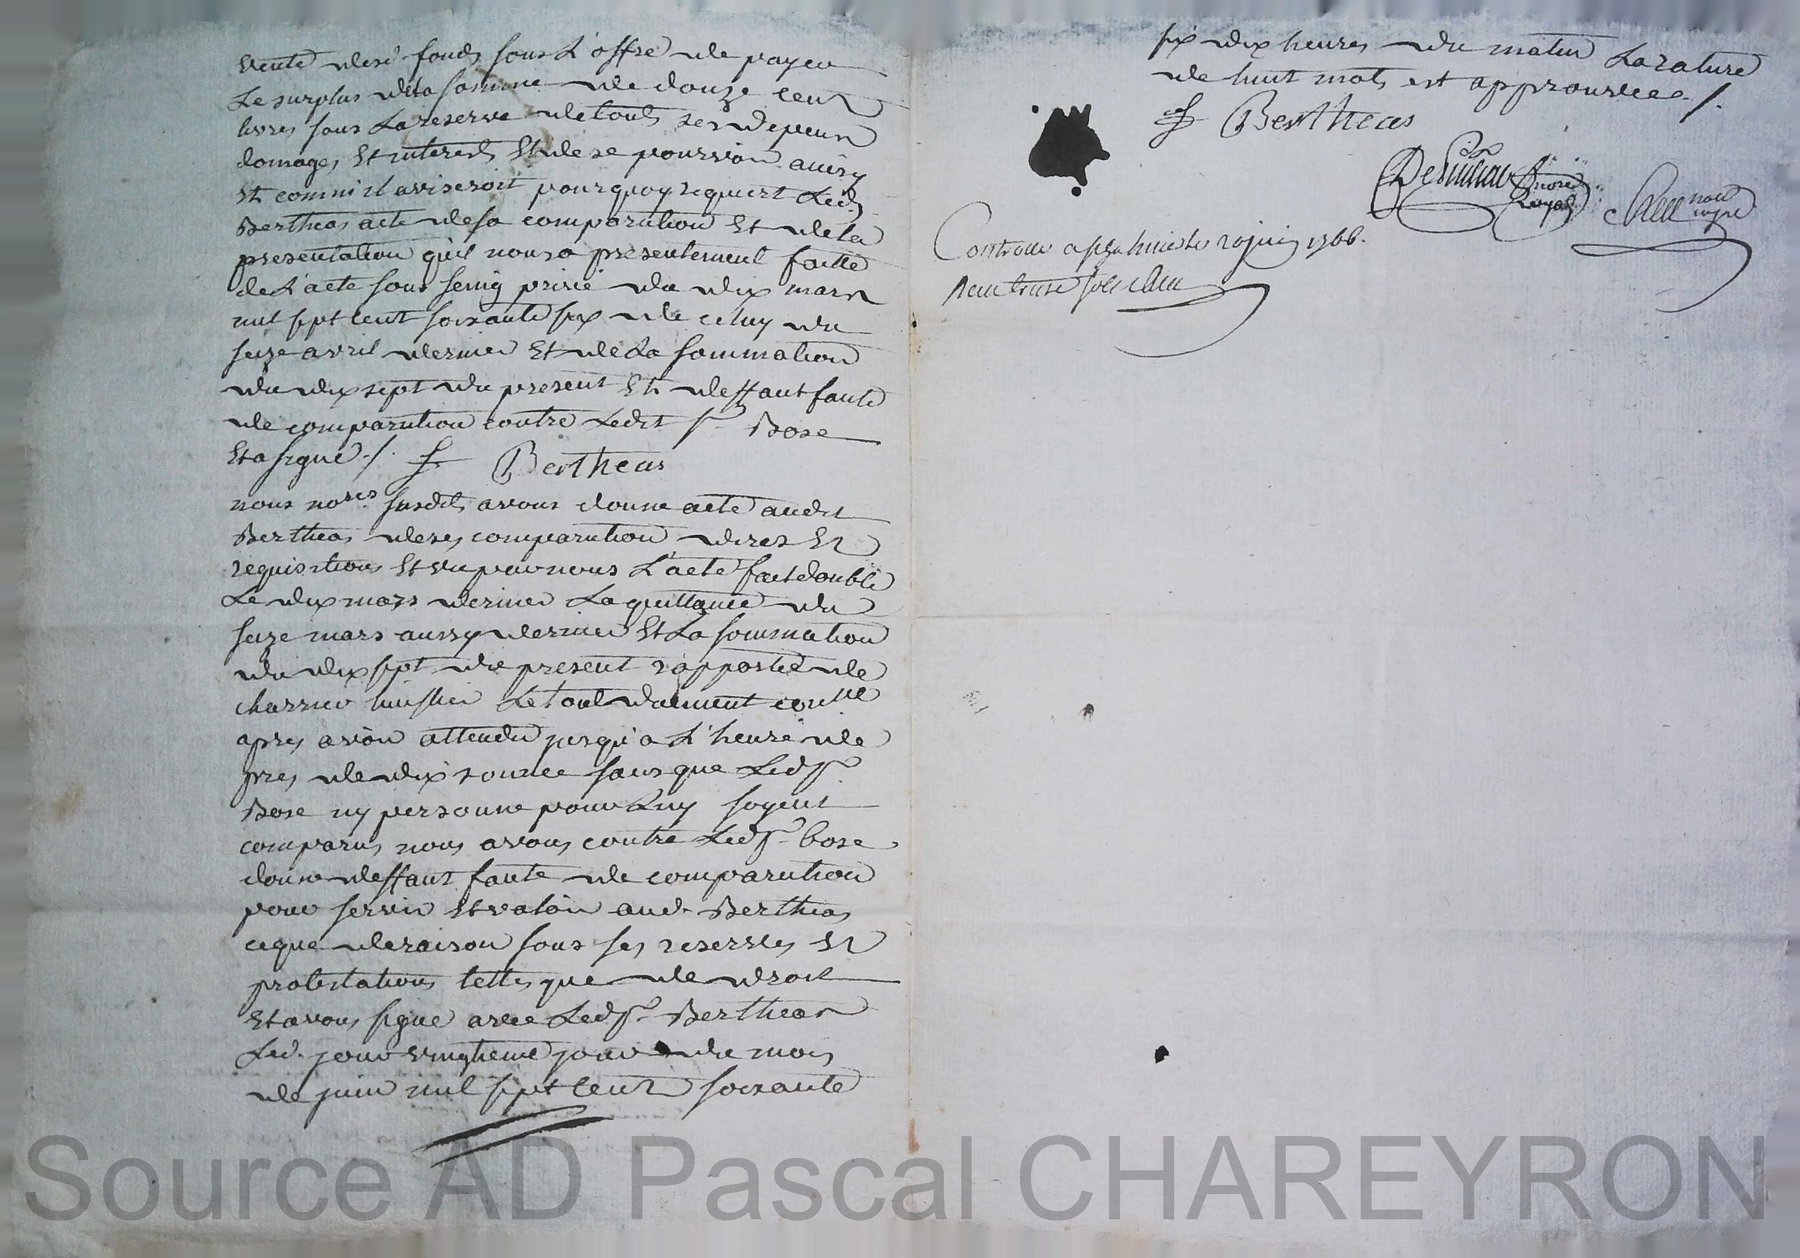 vente desd fonds sous l'offre de payer
le surplus de la somme de douze cent
livres sous la reserve de touts ses depens
domages et interets et de se pourvoir ainsy
et comm'il aviseroit pourquoy requiert led.
Bertheas acte de sa comparution et de la
presentation qu'il nous a presentement faitte
de l'acte sous seing privé du dix mars
mil sept cent soixante six de celuy du
seze avril dernier et de la sommation
du dix sept du present et deffaut faute
de comparution contre ledit sr Bose
et a signé ./.
Bertheas
nous nores susdits avons donné acte audit
Bertheas de ses comparution dires et
requisitions et vu par nous l'acte fait double
le dix mars dernier la quittance du
seze mars aussy dernier et la sommation
du dix sept du present rapportée de
charrier huissier le tout duement conllé
apres avoir attendu jusqu'a l'heure de
pres de dix sonnée sans que led sr
Bose ny personne pour luy soyent
comparus nous avons contre led sr bose
donné deffaut faute de comparution
pour servir et valoir aud. Bertheas
ce que de raison sous ses reserves et
protestations telles que de droit
et avons signé avec led sr Bertheas
led. jour vingtieme jour du mois
de juin mil sept cent soixante
six dix heures du matin la rature
de huit mots est approuvée ./.
Bertheas
nore
royal
nore
royal
Controllé a le 20 juin 1766.
Source AD Pascal CHAREYRON